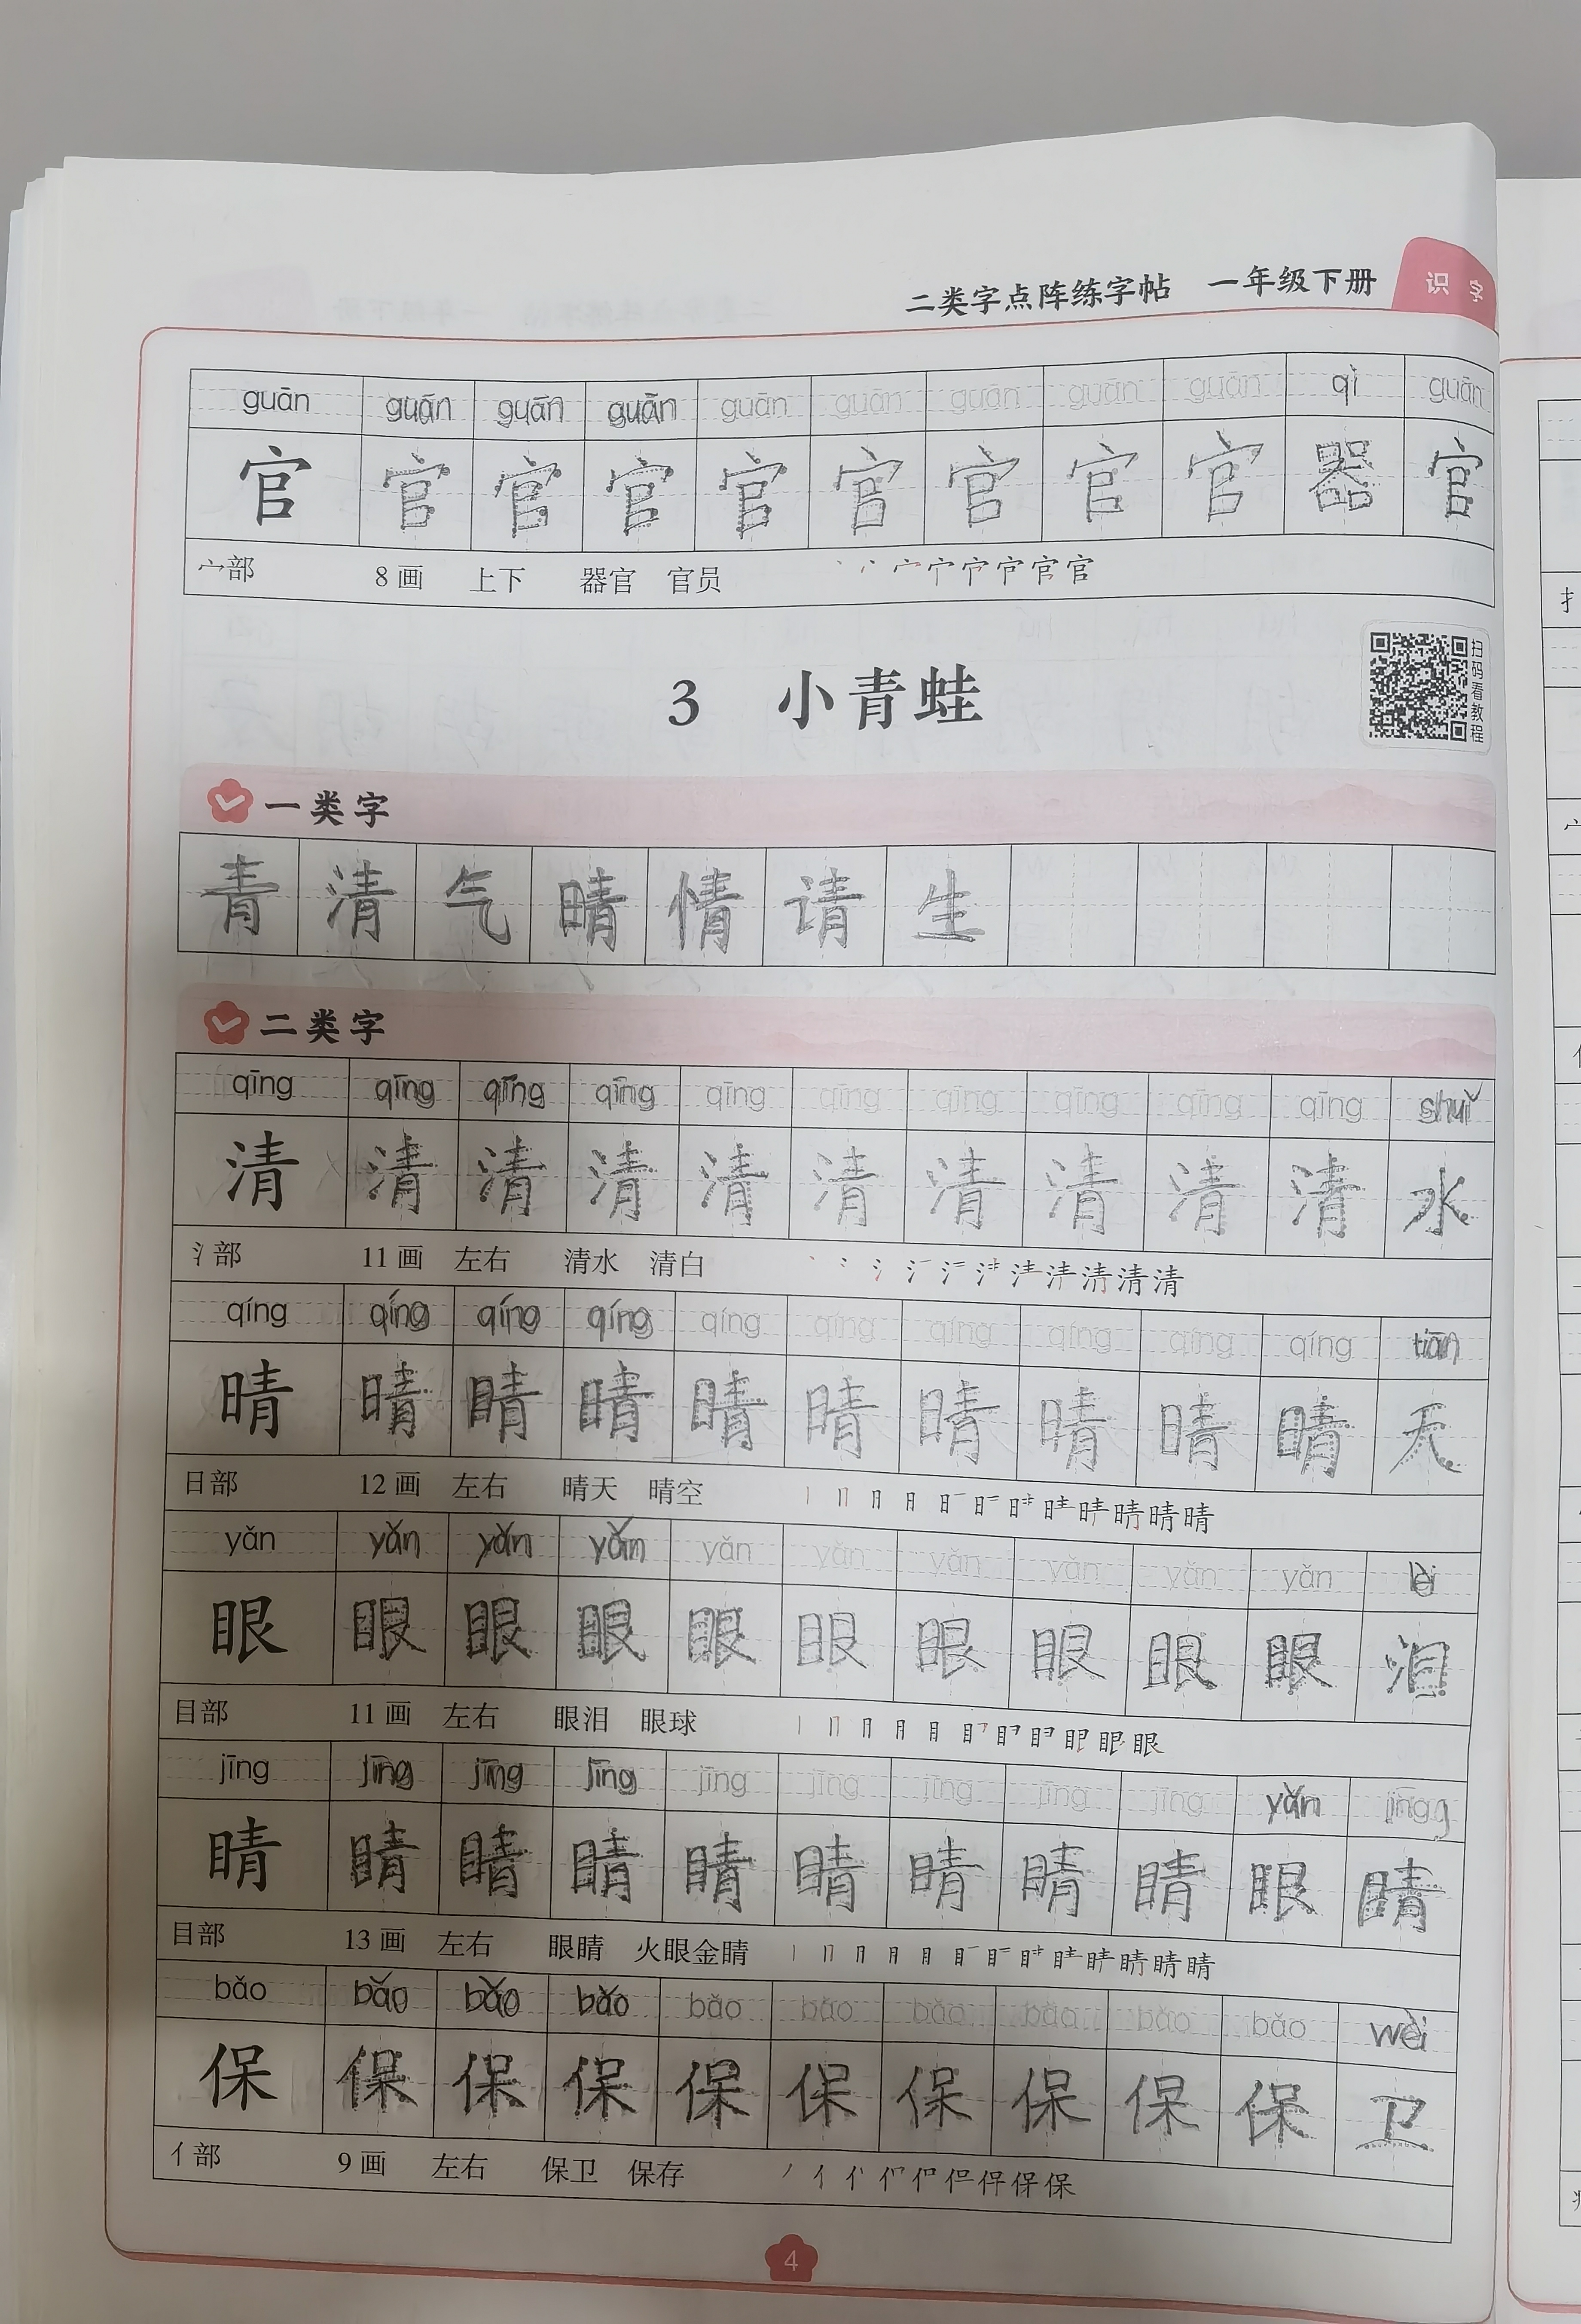 二类字点阵练字帖 一年级下册 识字
guān guān guān guān guān guān guān guān guān qì guān
官 官 官 官 官 官 官 官 官 器 官
宀部 8画 上下 器官 官员
3 小青蛙
扫码看教程
一类字
青 清 气 晴 情 请 生
二类字
qīng qīng qīng qīng qīng qīng qīng qīng qīng qīng shuǐ
清 清 清 清 清 清 清 清 清 清 水
氵部 11画 左右 清水 清白
qíng qíng qíng qíng qíng qíng qíng qíng qíng qíng tiān
晴 晴 晴 晴 晴 晴 晴 晴 晴 晴 天
日部 12画 左右 晴天 晴空
yǎn yǎn yǎn yǎn yǎn yǎn yǎn yǎn yǎn yǎn lèi
眼 眼 眼 眼 眼 眼 眼 眼 眼 眼 泪
目部 11画 左右 眼泪 眼球
jīng jīng jīng jīng jīng jīng jīng jīng jīng yǎn jīng
睛 睛 睛 睛 睛 睛 睛 睛 睛 眼 睛
目部 13画 左右 眼睛 火眼金睛
bǎo bǎo bǎo bǎo bǎo bǎo bǎo bǎo bǎo bǎo wèi
保 保 保 保 保 保 保 保 保 保 卫
亻部 9画 左右 保卫 保存
4